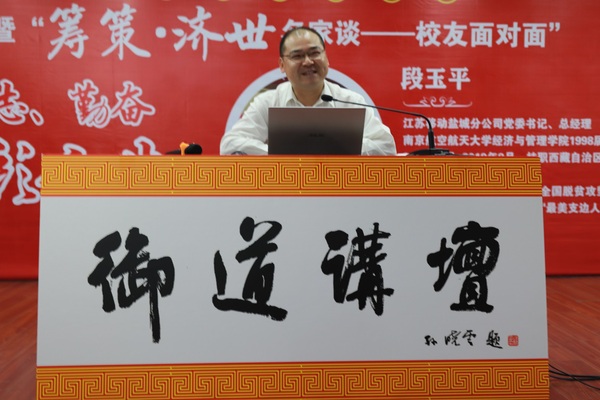 暨“筹策·济世名家谈——校友面对面”
段玉平
志、勤奋
江苏移动盐城分公司党委书记、总经理
南京航空航天大学经济与管理学院1998届
挂职西藏自治区
全国脱贫攻坚
“最美支边人
御道講壇
孙晓云 题